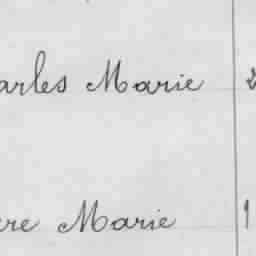 arles Marie 2
re Marie 1